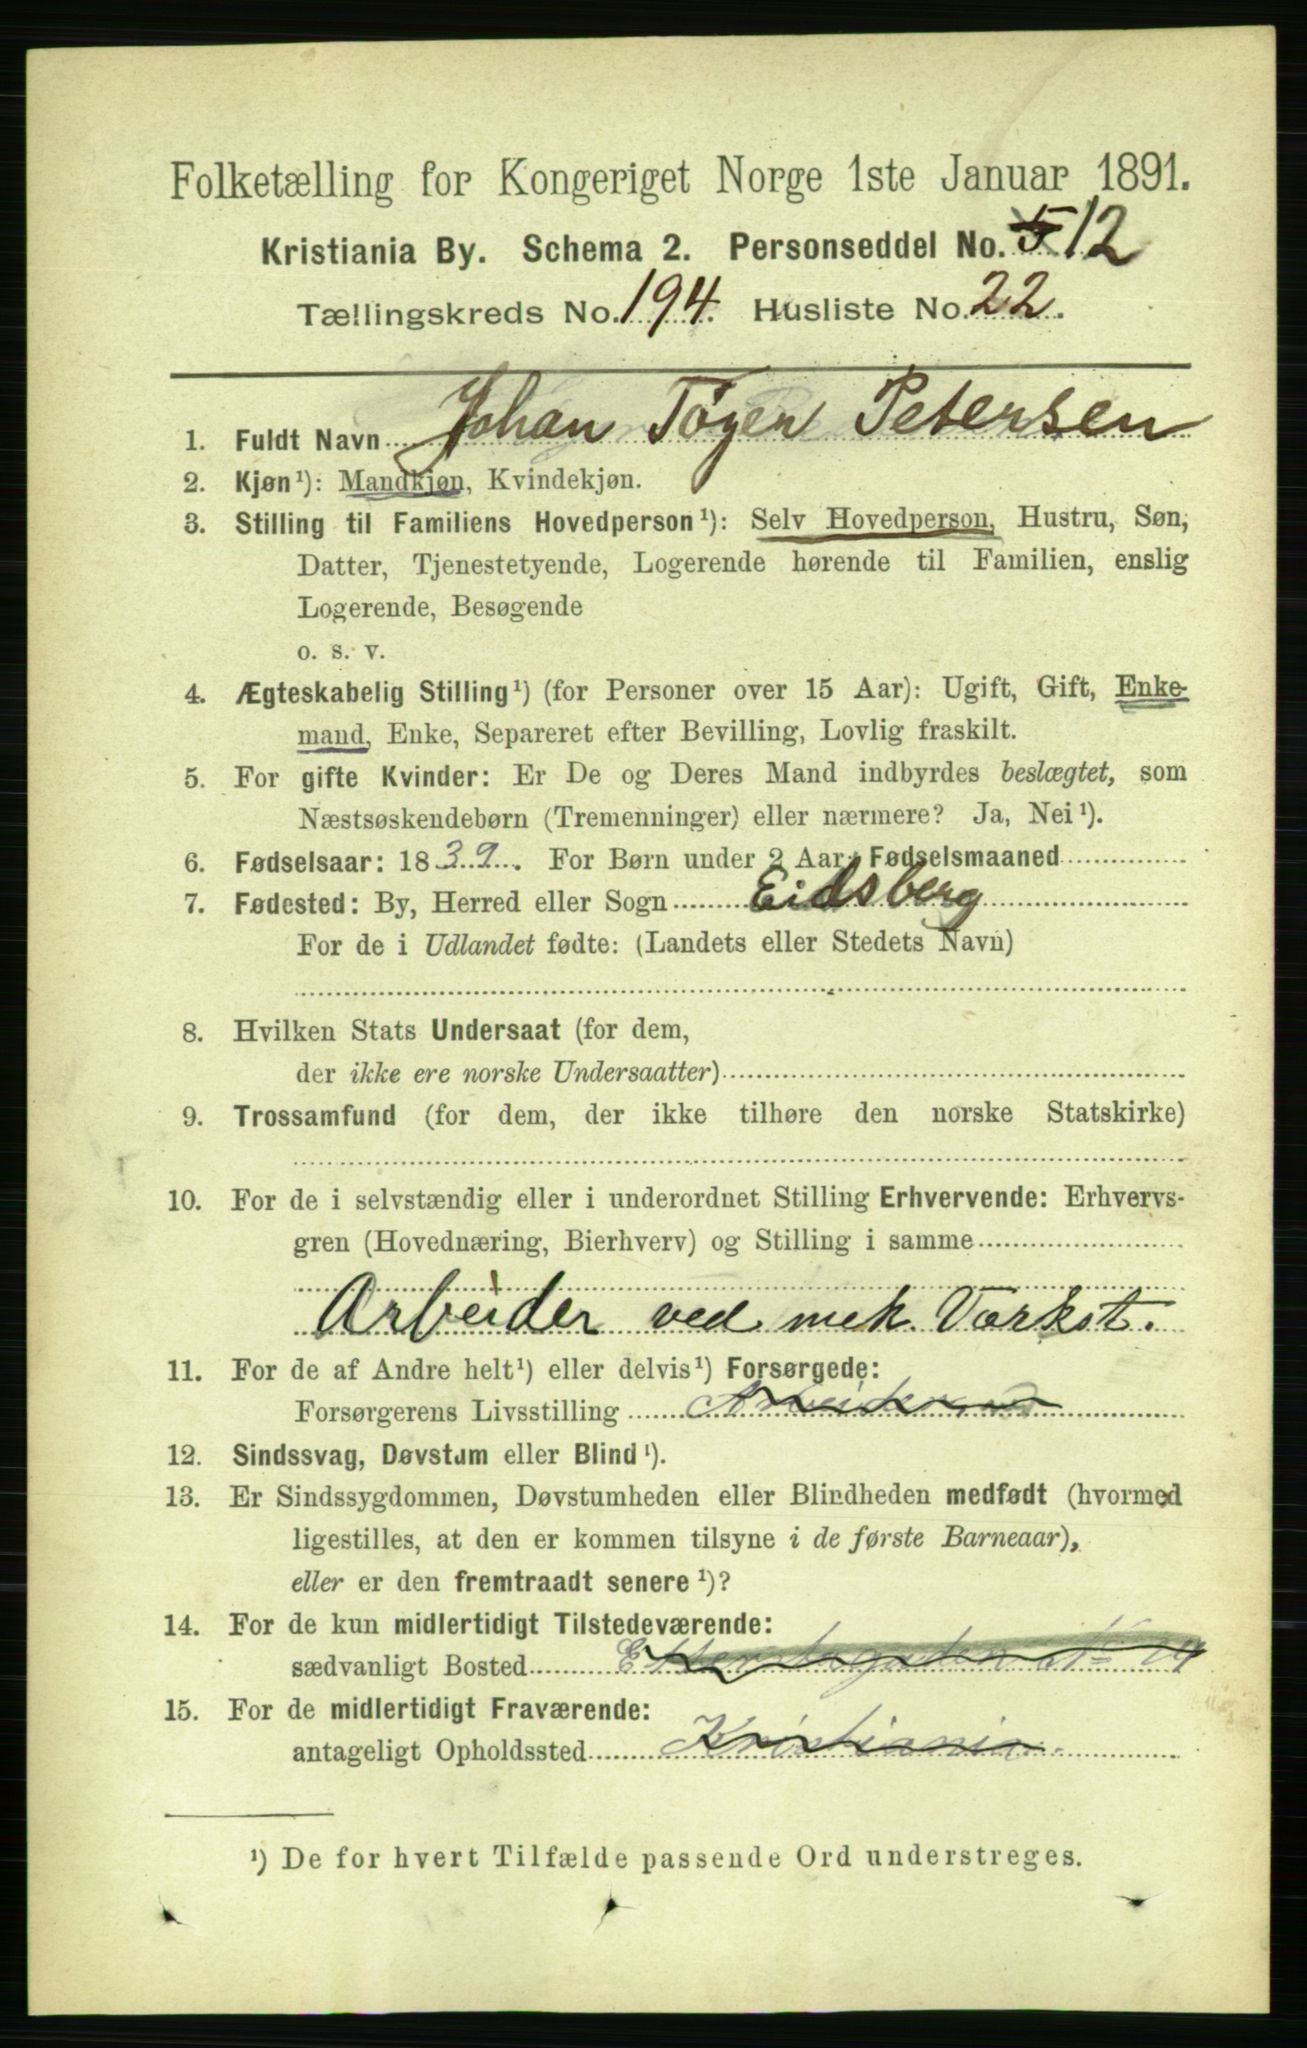 Folketælling for Kongeriget Norge 1ste Januar 1891.
Kristiania By. Schema 2. Personseddel No. 5 12
Tællingskreds No. 194. Husliste No. 22.
1. Fuldt Navn Johan Töger Petersen
2. Kjøn¹): Mandkjøn, Kvindekjøn.
3. Stilling til Familiens Hovedperson¹): Selv Hovedperson, Hustru, Søn,
Datter, Tjenestetyende, Logerende hørende til Familien, enslig
Logerende, Besøgende
o. s. v.
4. Ægteskabelig Stilling¹) (for Personer over 15 Aar): Ugift, Gift, Enke-
mand, Enke, Separeret efter Bevilling, Lovlig fraskilt.
5. For gifte Kvinder: Er De og Deres Mand indbyrdes beslægtet, som
Næstsøskendebørn (Tremenninger) eller nærmere? Ja, Nei¹).
6. Fødselsaar: 1839. For Børn under 2 Aar: Fødselsmaaned
7. Fødested: By, Herred eller Sogn Eidsberg
For de i Udlandet fødte: (Landets eller Stedets Navn)
8. Hvilken Stats Undersaat (for dem,
der ikke ere norske Undersaatter)
9. Trossamfund (for dem, der ikke tilhøre den norske Statskirke)
10. For de i selvstændig eller i underordnet Stilling Erhvervende: Erhvervs-
gren (Hovednæring, Bierhverv) og Stilling i samme
Arbeider ved mek. Værkst.
11. For de af Andre helt¹) eller delvis¹) Forsørgede:
Forsørgerens Livsstilling
12. Sindssvag, Døvstum eller Blind¹).
13. Er Sindssygdommen, Døvstumheden eller Blindheden medfødt (hvormed
ligestilles, at den er kommen tilsyne i de første Barneaar),
eller er den fremtraadt senere¹)?
14. For de kun midlertidigt Tilstedeværende:
sædvanligt Bosted
15. For de midlertidigt Fraværende:
antageligt Opholdssted Kristiania
¹) De for hvert Tilfælde passende Ord understreges.